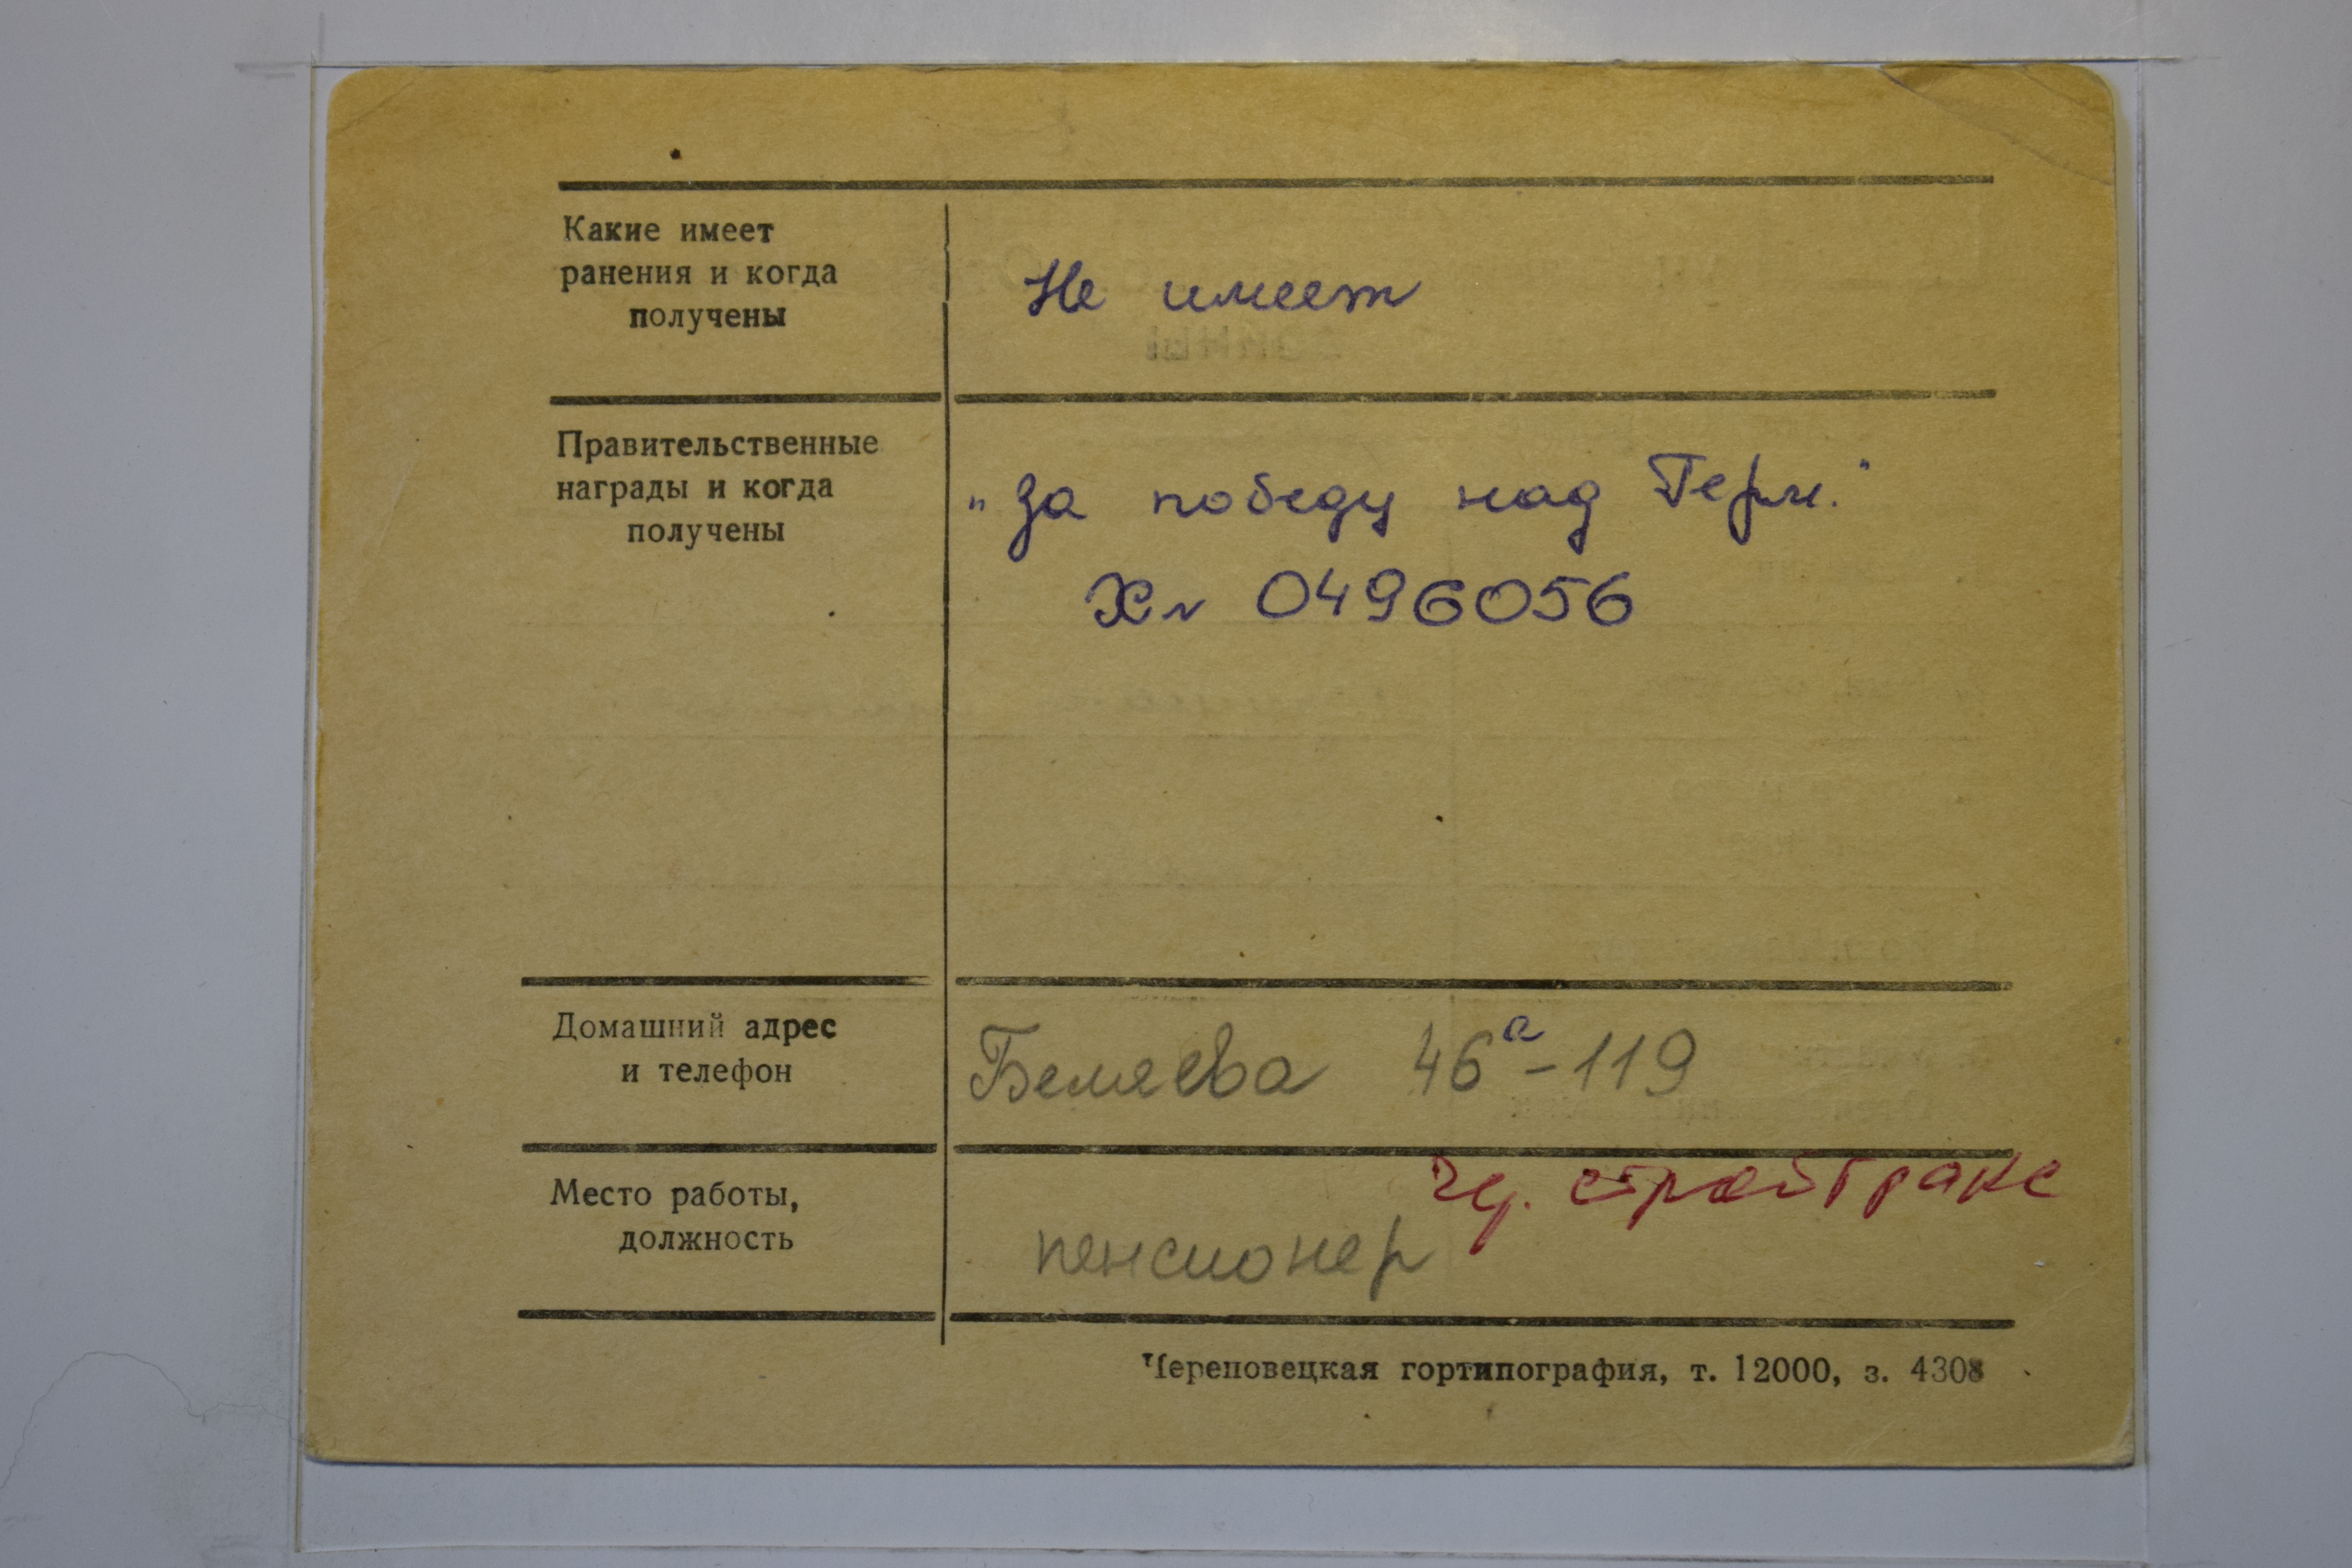 Какие имеет
ранения и когда
получены
Не имеет
Правительственные
награды и когда
получены
„За победу над Герм."
Хл 0496056
Домашний адрес
и телефон
Беляева 46а-119
Место работы,
должность
стройтранс
пенсионер
Череповецкая гортипография, т. 12000, з. 4308